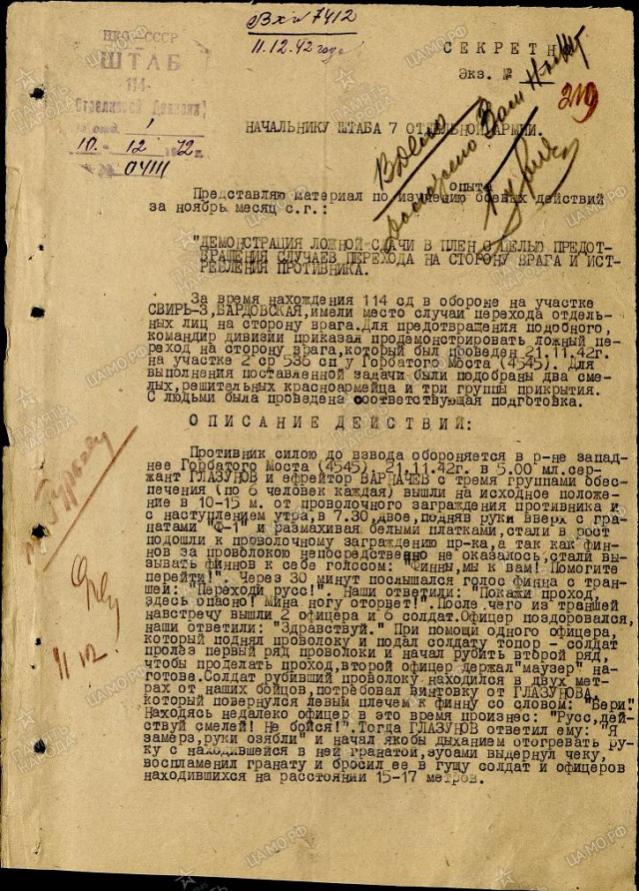 Вх № 7412
11.12.42 года
НКО-СССР
ШТАБ
114-
Стрелковой Дивизии
1
10. - 12 1942 г.
№ 04111
СЕКРЕТН
Экз. №
219
НАЧАЛЬНИКУ ШТАБА 7 ОТДЕЛЬНОЙ АРМИИ.
опыта
Представляю материал по изучению боевых действий
за ноябрь месяц с.г.:
"ДЕМОНСТРАЦИЯ ЛОЖНОЙ СДАЧИ В ПЛЕН С ЦЕЛЬЮ ПРЕДОТ-
ВРАЩЕНИЯ СЛУЧАЕВ ПЕРЕХОДА НА СТОРОНУ ВРАГА И ИСТ-
РЕБЛЕНИЯ ПРОТИВНИКА.
За время нахождения 114 сд в обороне на участке
СВИРЬ-3, БАРДОВСКАЯ, имели место случаи перехода отдель-
ных лиц на сторону врага. Для предотвращения подобного,
командир дивизии приказал продемонстрировать ложный пе-
реход на сторону врага, который был проведен 21.11.42г.
на участке 2 ср 536 сп у Горбатого Моста (4545). Для
выполнения поставленной задачи были подобраны два сме-
лых, решительных красноармейца и три группы прикрытия.
С людьми была проведена соответствующая подготовка.
ОПИСАНИЕ ДЕЙСТВИЙ:
Противник силою до взвода обороняется в р-не запад-
нее Горбатого Моста (4545). 21.11.42г. в 5.00 мл.сер-
жант ГЛАЗУНОВ и ефрейтор ВАРПАЧЕВ с тремя группами обес-
печения (по 6 человек каждая) вышли на исходное положе-
ние в 10-15 м. от проволочного заграждения противника и
с наступлением утра, в 7.30, двое, подняв руки вверх с гра-
натами "Ф-1" и размахивая белыми платками, стали в рост
подошли к проволочному заграждению пр-ка, а так как фин-
нов за проволокою непосредственно не оказалось, стали вы-
зывать финнов к себе голосом: "Финны, мы к вам! Помогите
перейти!". Через 30 минут послышался голос финна с тран-
шей: "Переходи русс!". Наши ответили: "Покажи проход,
здесь опасно! Мина ногу оторвет!". После чего из траншей
навстречу вышли 2 офицера и 6 солдат. Офицер поздоровался,
наши ответили: "Здравствуй." При помощи одного офицера,
который поднял проволоку и подал солдату топор, солдат
пролез первый ряд проволоки и начал рубить второй ряд,
чтобы проделать проход, второй офицер держал "маузер" на-
готове. Солдат рубивший проволоку находился в двух мет-
рах от наших бойцов, потребовал винтовку от ГЛАЗУНОВА,
который повернулся левым плечем к финну со словом: "Бери".
Находясь недалеко офицер в это время произнес: "Русс, дей-
ствуй смелей! Не бойся!". Тогда ГЛАЗУНОВ ответил ему: "Я
замерз, руки озябли" и начал якобы дыханием отогревать ру-
ку с находившейся в ней гранатой, зубами выдернул чеку,
воспламенил гранату и бросил ее в гущу солдат и офицеров
находившихся на расстоянии 15-17 метров.
11 12.
ПАМЯТЬ НАРОДА
ЦАМО.РФ